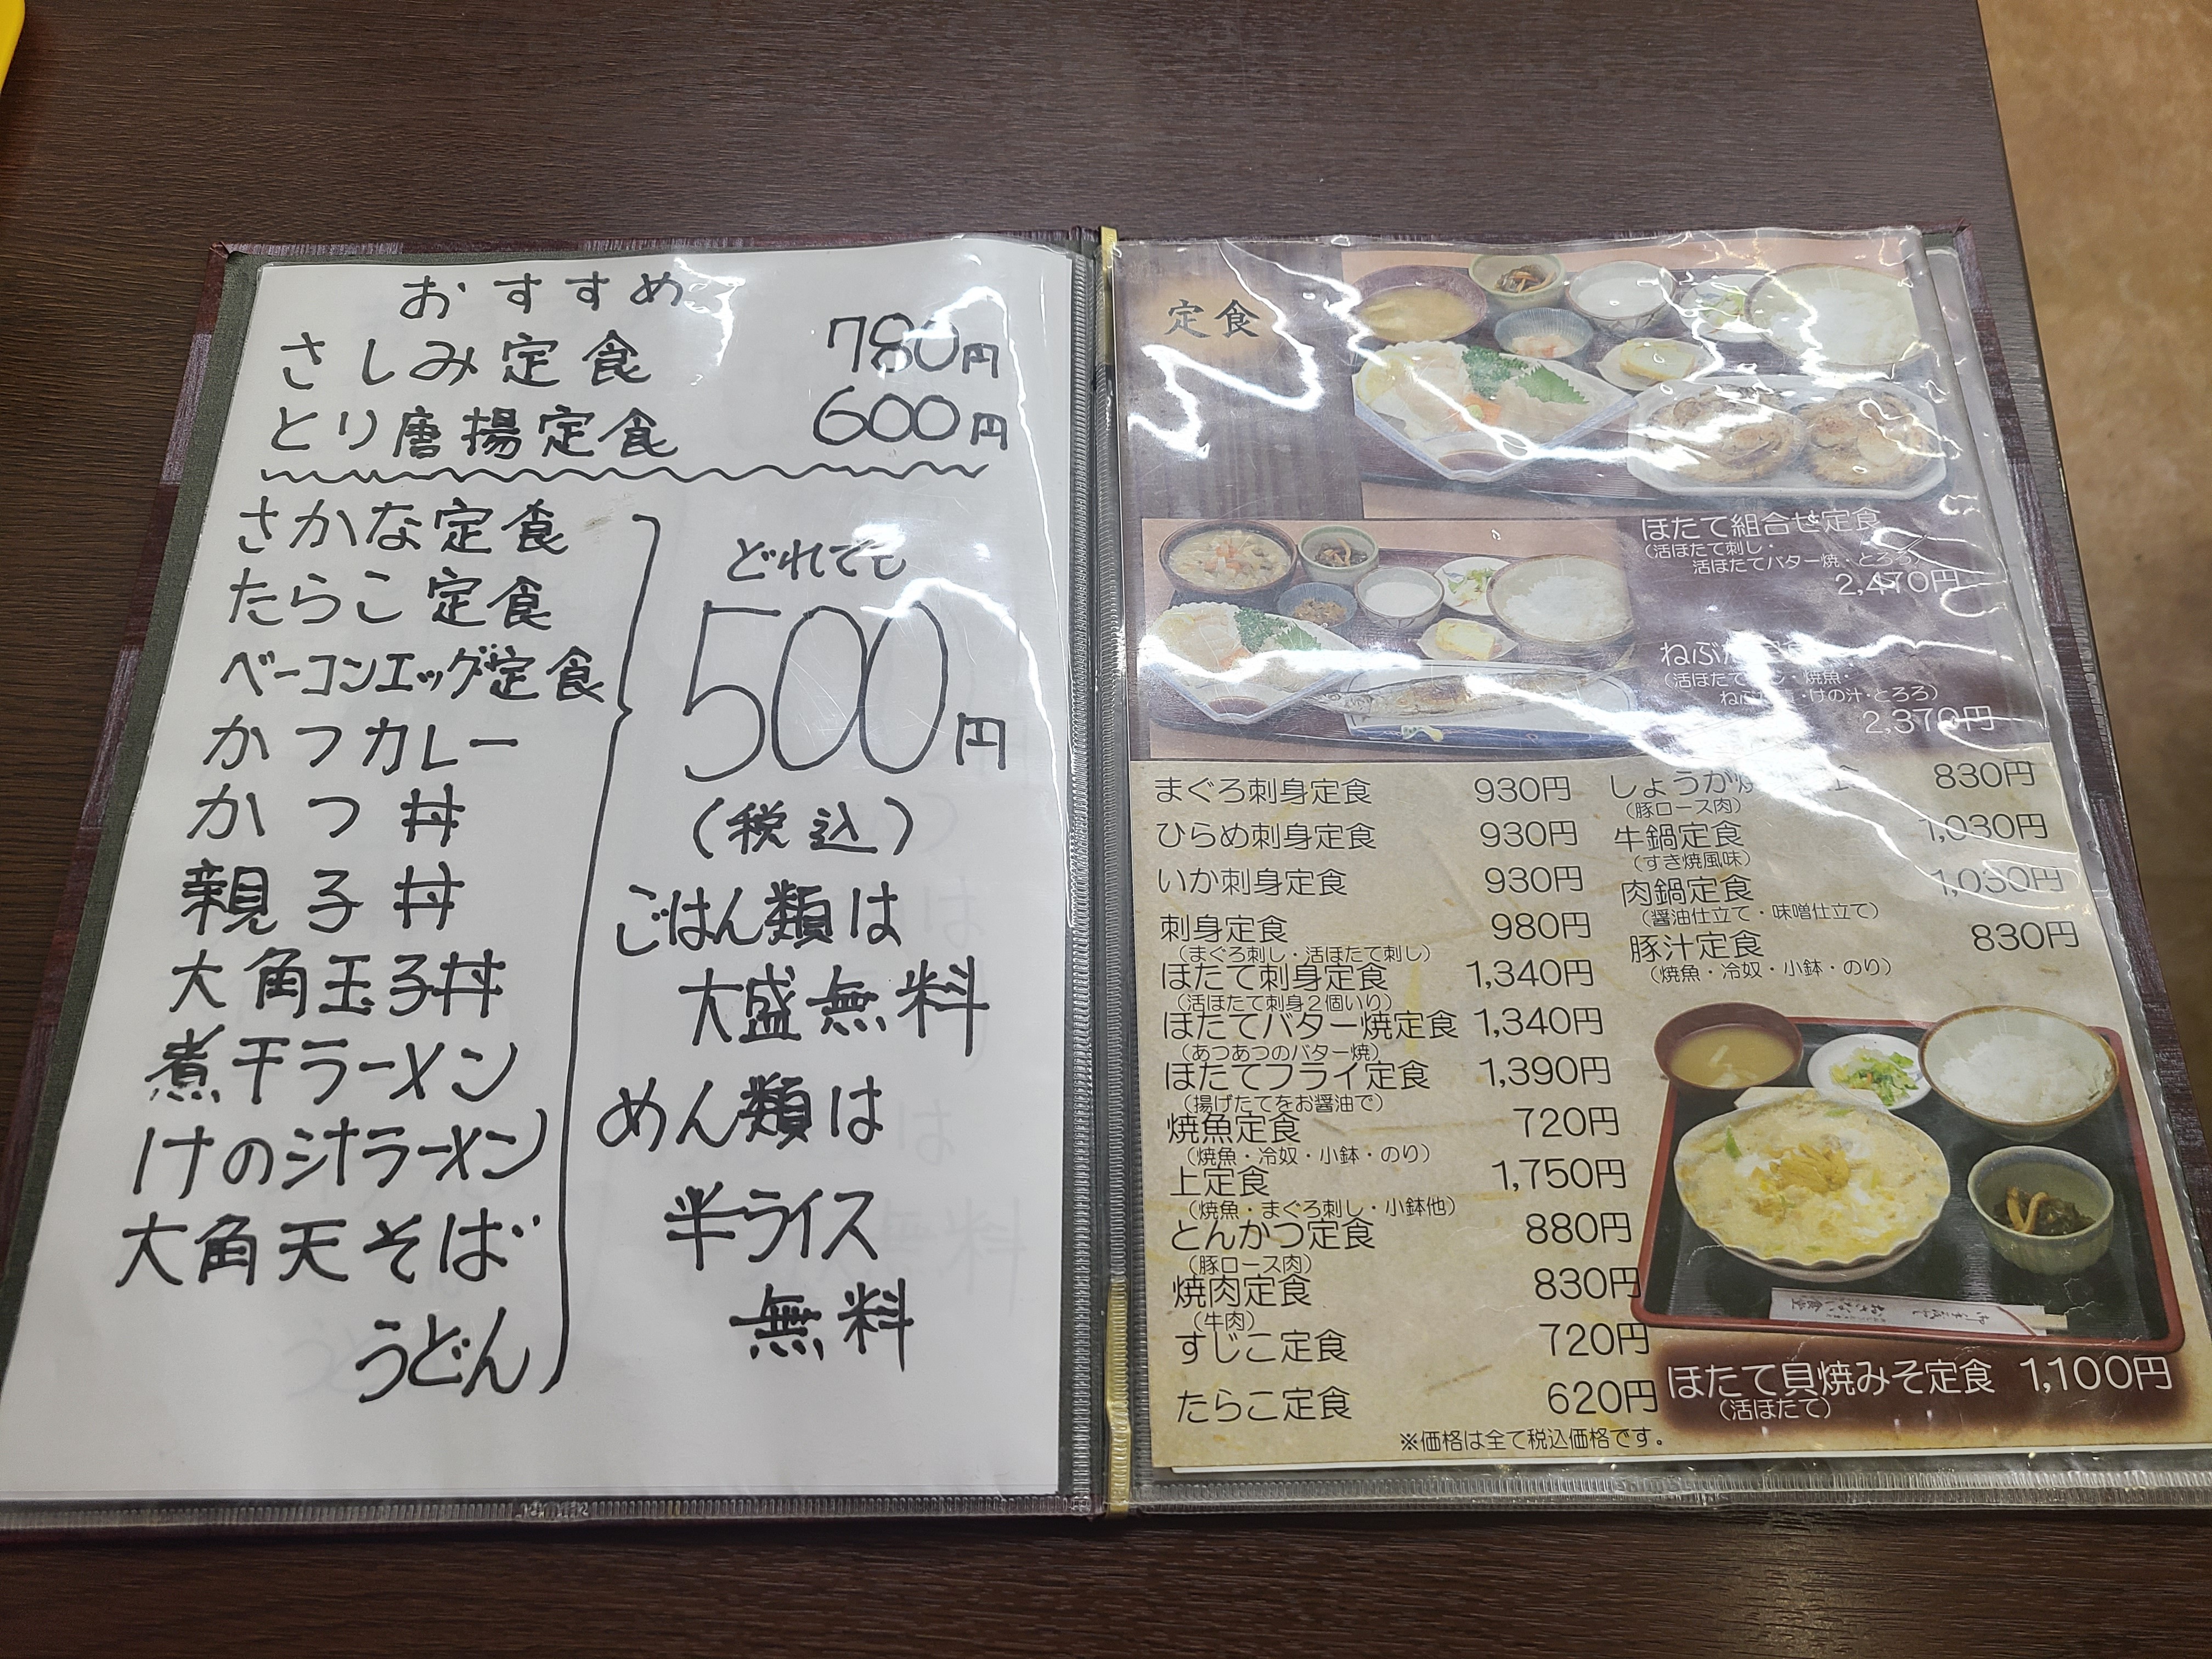 おすすめ
さしみ定食 780円
とり唐揚定食 600円
さかな定食
たらこ定食
ベーコンエッグ定食
かつカレー
かつ丼
親子丼
大角玉子丼
煮干ラーメン
けの汁ラーメン
大角天そば
うどん
どれでも
500円
(税込)
ごはん類は
大盛無料
めん類は
半ライス
無料
定食
ほたて組合せ定食
(活ほたて刺し・
活ほたてバター焼・とろろ)
2,470円
ねぶた
(活ほたて
し・焼魚・
・けの汁・とろろ)
2,370円
まぐろ刺身定食 930円
ひらめ刺身定食 930円
いか刺身定食 930円
刺身定食 980円
(まぐろ刺し・活ほたて刺し)
ほたて刺身定食 1,340円
(活ほたて刺身2個いり)
ほたてバター焼定食 1,340円
(あつあつのバター焼)
ほたてフライ定食 1,390円
(揚げたてをお醤油で)
焼魚定食 720円
(焼魚・冷奴・小鉢・のり)
上定食 1,750円
(焼魚・まぐろ刺し・小鉢他)
とんかつ定食 880円
(豚ロース肉)
焼肉定食 830円
(牛肉)
すじこ定食 720円
たらこ定食 620円
しょうが焼 830円
(豚ロース肉)
牛鍋定食 1,030円
(すき焼風味)
肉鍋定食 1,030円
(醤油仕立て・味噌仕立て)
豚汁定食 830円
(焼魚・冷奴・小鉢・のり)
ほたて貝焼みそ定食 1,100円
(活ほたて)
※価格は全て税込価格です。